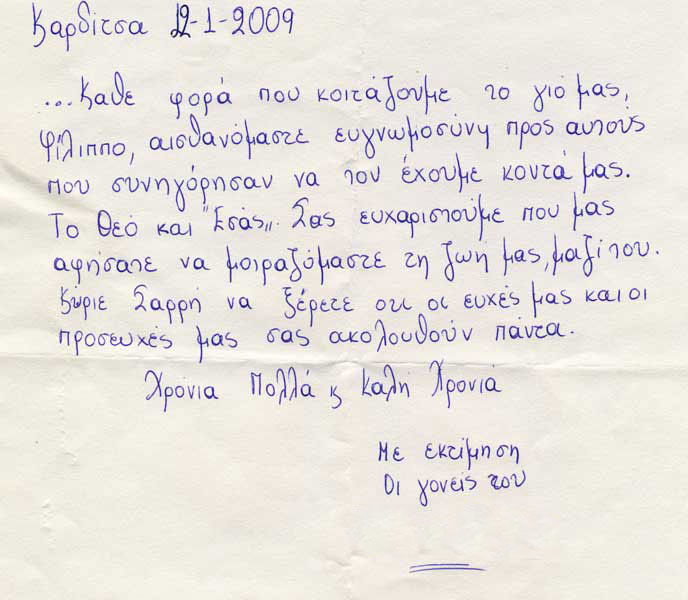 Καρδίτσα 12-1-2009
...Καθε φορά που κοιτάζουμε το γιό μας,
Φίλιππο, αισθανόμαστε ευγνωμοσύνη προς αυτούς
που συνηγόρησαν να τον έχουμε κοντά μας.
Το Θεό και "Εσάς". Σας ευχαριστούμε που μας
αφήσατε να μοιραζόμαστε τη ζωή μας, μαζί του.
Κύριε Σαρρή να ξέρετε οτι οι ευχές μας και οι
προσευχές μας σας ακολουθούν πάντα.
Χρόνια Πολλά κ Καλή Χρονιά
Με εκτίμηση
Οι γονείς του